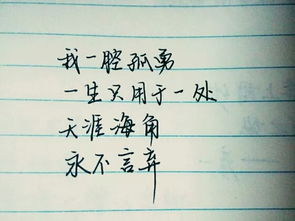 我一腔孤勇
一生只用于一处
天涯海角
永不言弃